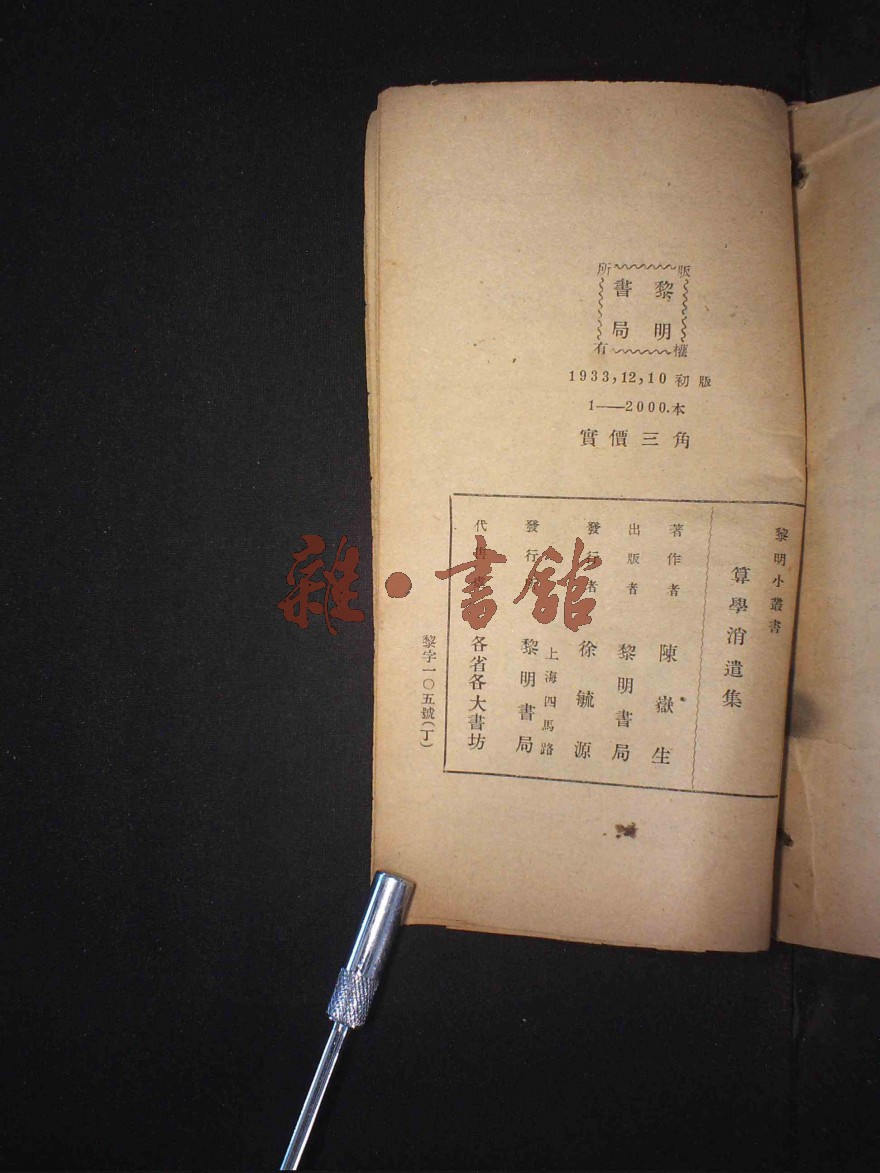 版權所有
黎明書局
1933,12,10 初版
1——2000.本
實價三角
黎明小叢書
算學消遣集
著作者 陳嶽生
出版者 黎明書局
發行者 徐毓源
上海四馬路
發行 黎明書局
代 各省各大書坊
黎字一〇五號(丁)
雜·書館